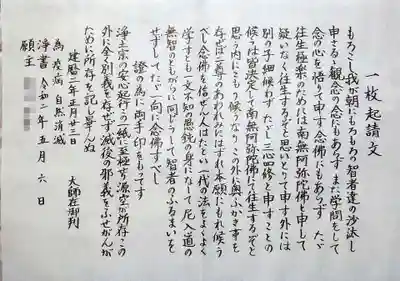 一枚起請文
もろこし我が朝にもろもろの智者達の沙汰し
申さるゝ観念の念にもあらず また学問をして
念の心を悟りて申す念佛にもあらず たゞ
往生極楽のためには南無阿弥陀佛と申して
疑いなく往生するぞと思いとりて申す外には
別の子細候わず たゞし三心四修と申すことの
候うは皆決定して南無阿弥陀佛にて往生するぞと
思う内にこもり候うなり この外に奥ふかき事を
存ぜば二尊のあわれみにはずれ本願にもれ候う
べし 念佛を信ぜん人はたとい一代の法をよくよく
学すとも一文不知の愚鈍の身になして尼入道の
無智のともがらに同じうして智者のふるまいを
せずしてたゞ一向に念佛すべし
證の為に両手印をもってす
浄土宗の安心起行この一紙に至極す源空が所存この
外に全く別義を存ぜず滅後の邪義をふせがんが
ために所存を記し畢んぬ
建暦二年正月廿三日 大師在御判
為 疫病自然消滅
浄書 令和二年五月六日
願主